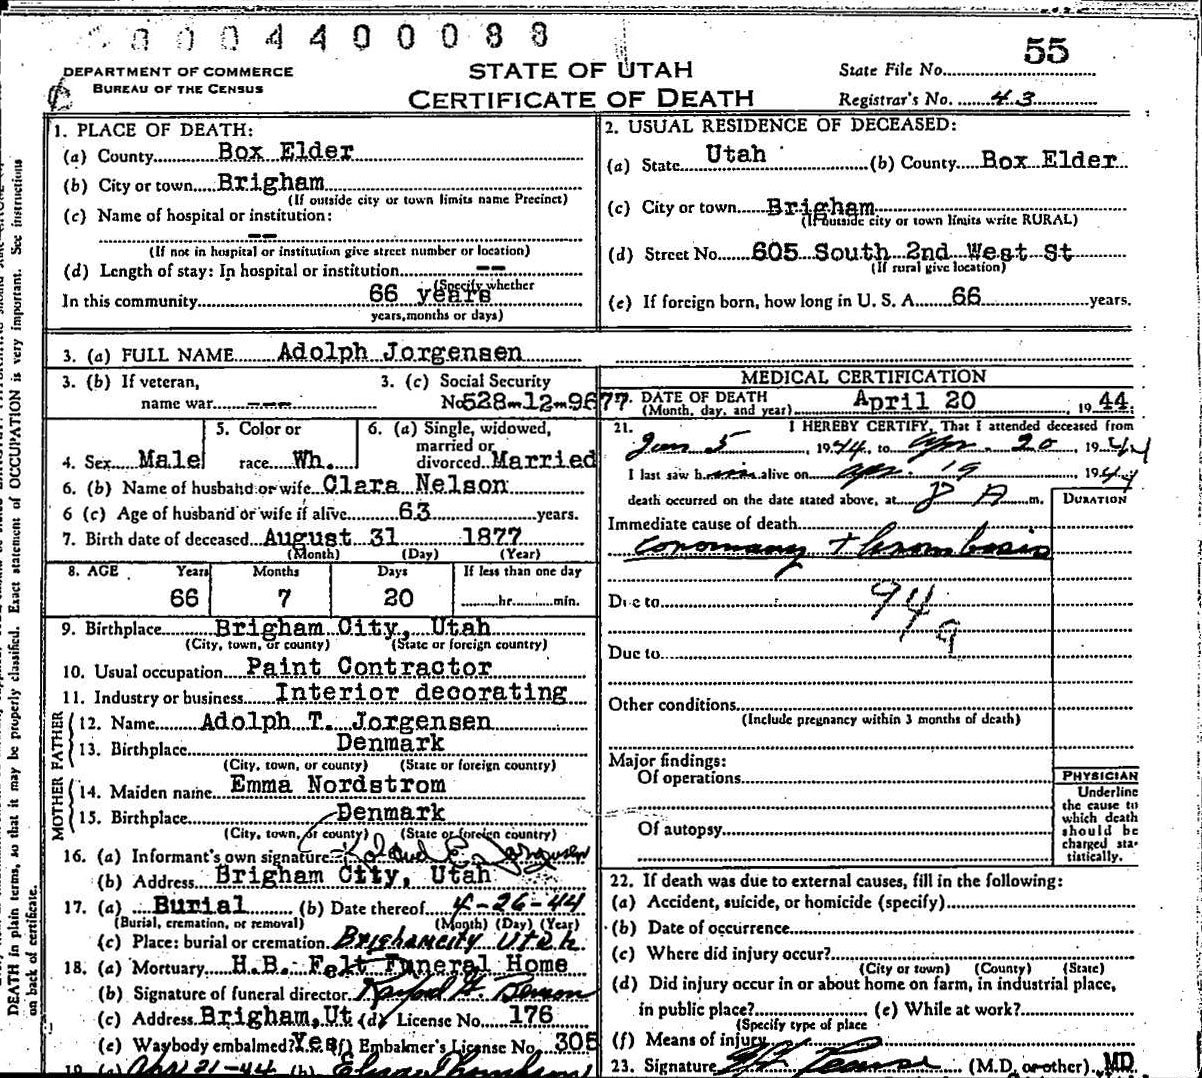 0004400088
DEPARTMENT OF COMMERCE
BUREAU OF THE CENSUS
STATE OF UTAH
CERTIFICATE OF DEATH
State File No. 55
Registrar's No. 43
1. PLACE OF DEATH:
(a) County Box Elder
(b) City or town Brigham
(If outside city or town limits name Precinct)
(c) Name of hospital or institution:
--
(If not in hospital or institution give street number or location)
(d) Length of stay: In hospital or institution --
(Specify whether
In this community 66 years
years, months or days)
2. USUAL RESIDENCE OF DECEASED:
(a) State Utah (b) County Box Elder
(c) City or town Brigham
(If outside city or town limits write RURAL)
(d) Street No. 605 South 2nd West St
(If rural give location)
(e) If foreign born, how long in U. S. A. 66 years.
3. (a) FULL NAME Adolph Jorgensen
3. (b) If veteran, name war ---
3. (c) Social Security No. 528-12-9677
4. Sex Male
5. Color or race Wh.
6. (a) Single, widowed, married or divorced Married
6. (b) Name of husband or wife Clara Nelson
6 (c) Age of husband or wife if alive 63 years.
7. Birth date of deceased August 31 1877
(Month) (Day) (Year)
8. AGE Years Months Days If less than one day
66 7 20 hr. min.
9. Birthplace Brigham City, Utah
(City, town, or county) (State or foreign country)
10. Usual occupation Paint Contractor
11. Industry or business Interior decorating
FATHER
12. Name Adolph T. Jorgensen
13. Birthplace Denmark
(City, town, or county) (State or foreign country)
MOTHER
14. Maiden name Emma Nordstrom
15. Birthplace Denmark
(City, town, or county) (State or foreign country)
16. (a) Informant's own signature E. Jorgensen
(b) Address Brigham City, Utah
17. (a) Burial (b) Date thereof 4-26-44
(Burial, cremation, or removal) (Month) (Day) (Year)
(c) Place: burial or cremation Brigham City Utah
18. (a) Mortuary H.B. Felt Funeral Home
(b) Signature of funeral director
(c) Address Brigham, Ut (d) License No. 176
(e) Was body embalmed? Yes (f) Embalmer's License No. 305
19. (a) Apr 21-44 (b)
MEDICAL CERTIFICATION
20. DATE OF DEATH
(Month, day, and year) April 20, 1944
21. I HEREBY CERTIFY, That I attended deceased from
Jan 5, 1944, to Apr. 20, 1944
I last saw him alive on Apr. 19 1944
death occurred on the date stated above, at 8 A m.
DURATION
Immediate cause of death
coronary thrombosis
Due to 94a
Due to
Other conditions
(Include pregnancy within 3 months of death)
Major findings:
Of operations
Of autopsy
PHYSICIAN
Underline
the cause to
which death
should be
charged sta-
tistically.
22. If death was due to external causes, fill in the following:
(a) Accident, suicide, or homicide (specify)
(b) Date of occurrence
(c) Where did injury occur?
(City or town) (County) (State)
(d) Did injury occur in or about home on farm, in industrial place,
in public place? (e) While at work?
(Specify type of place
(f) Means of injury
23. Signature (M.D. or other) MD
DEATH in plain terms, so that it may be properly classified. Exact statement of OCCUPATION is very important. See instructions
on back of certificate.